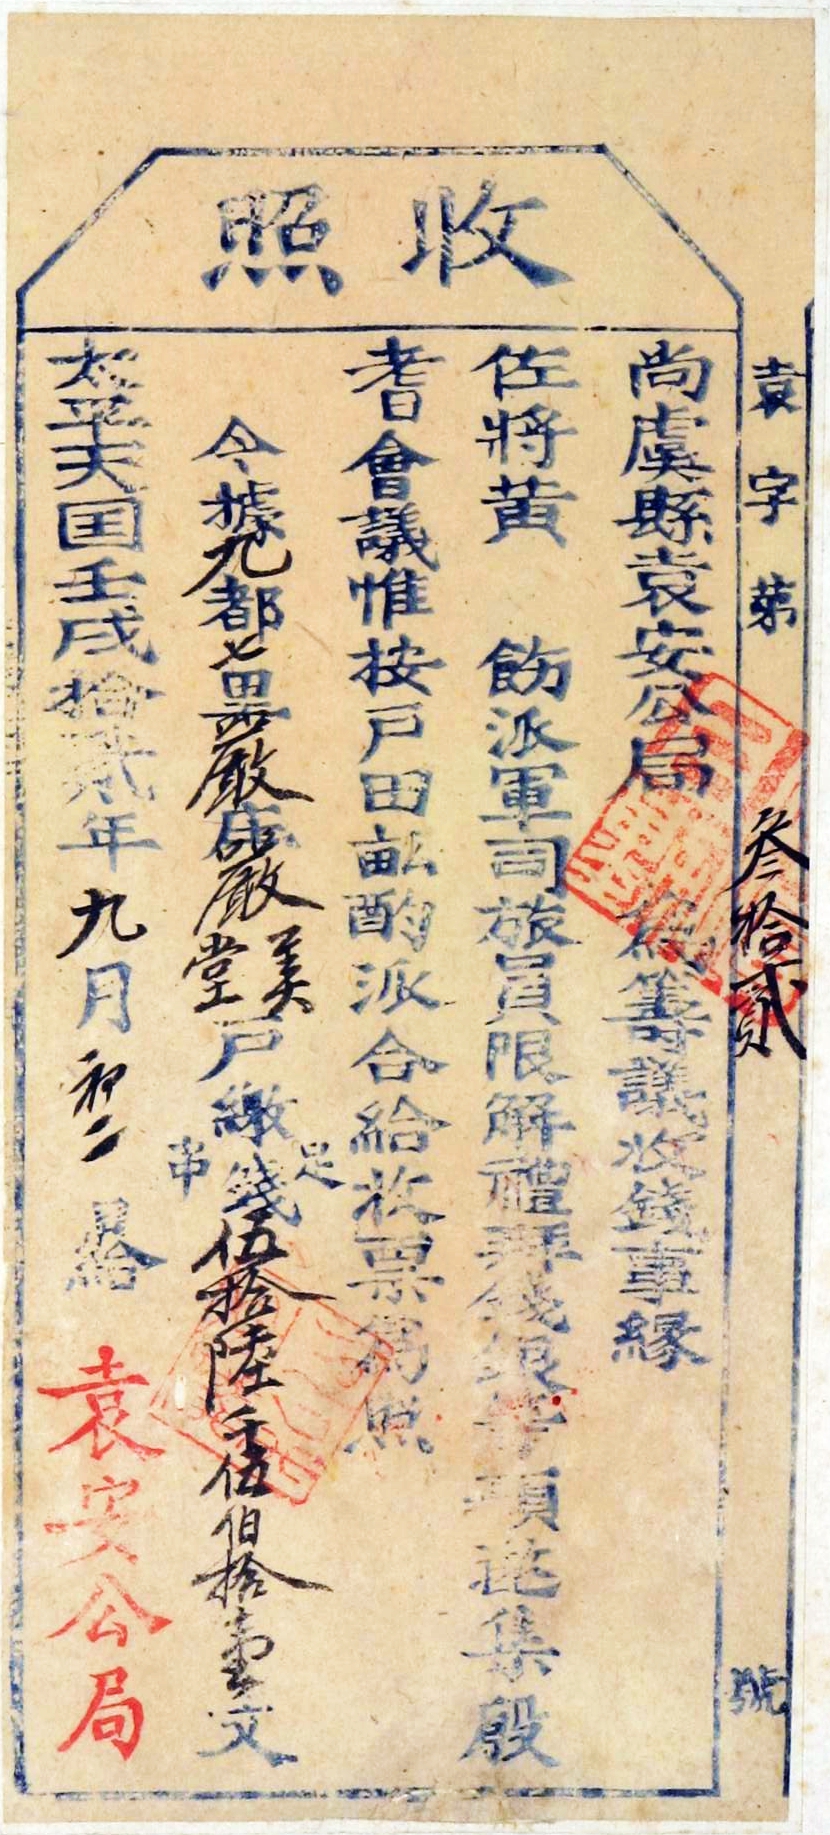 收照
袁字第叁拾貳號
尚虞縣袁安公局 為籌議收錢事緣
佐將黃 飭派軍司旅員限解禮拜錢銀等項集殷
耆會議惟按戶田畝酌派合給收票為照
今據九都七厫庄厫美堂戶繳足串錢伍拾陸千伍伯拾壹文
太平天囯壬戌拾貳年九月初二日給 袁安公局